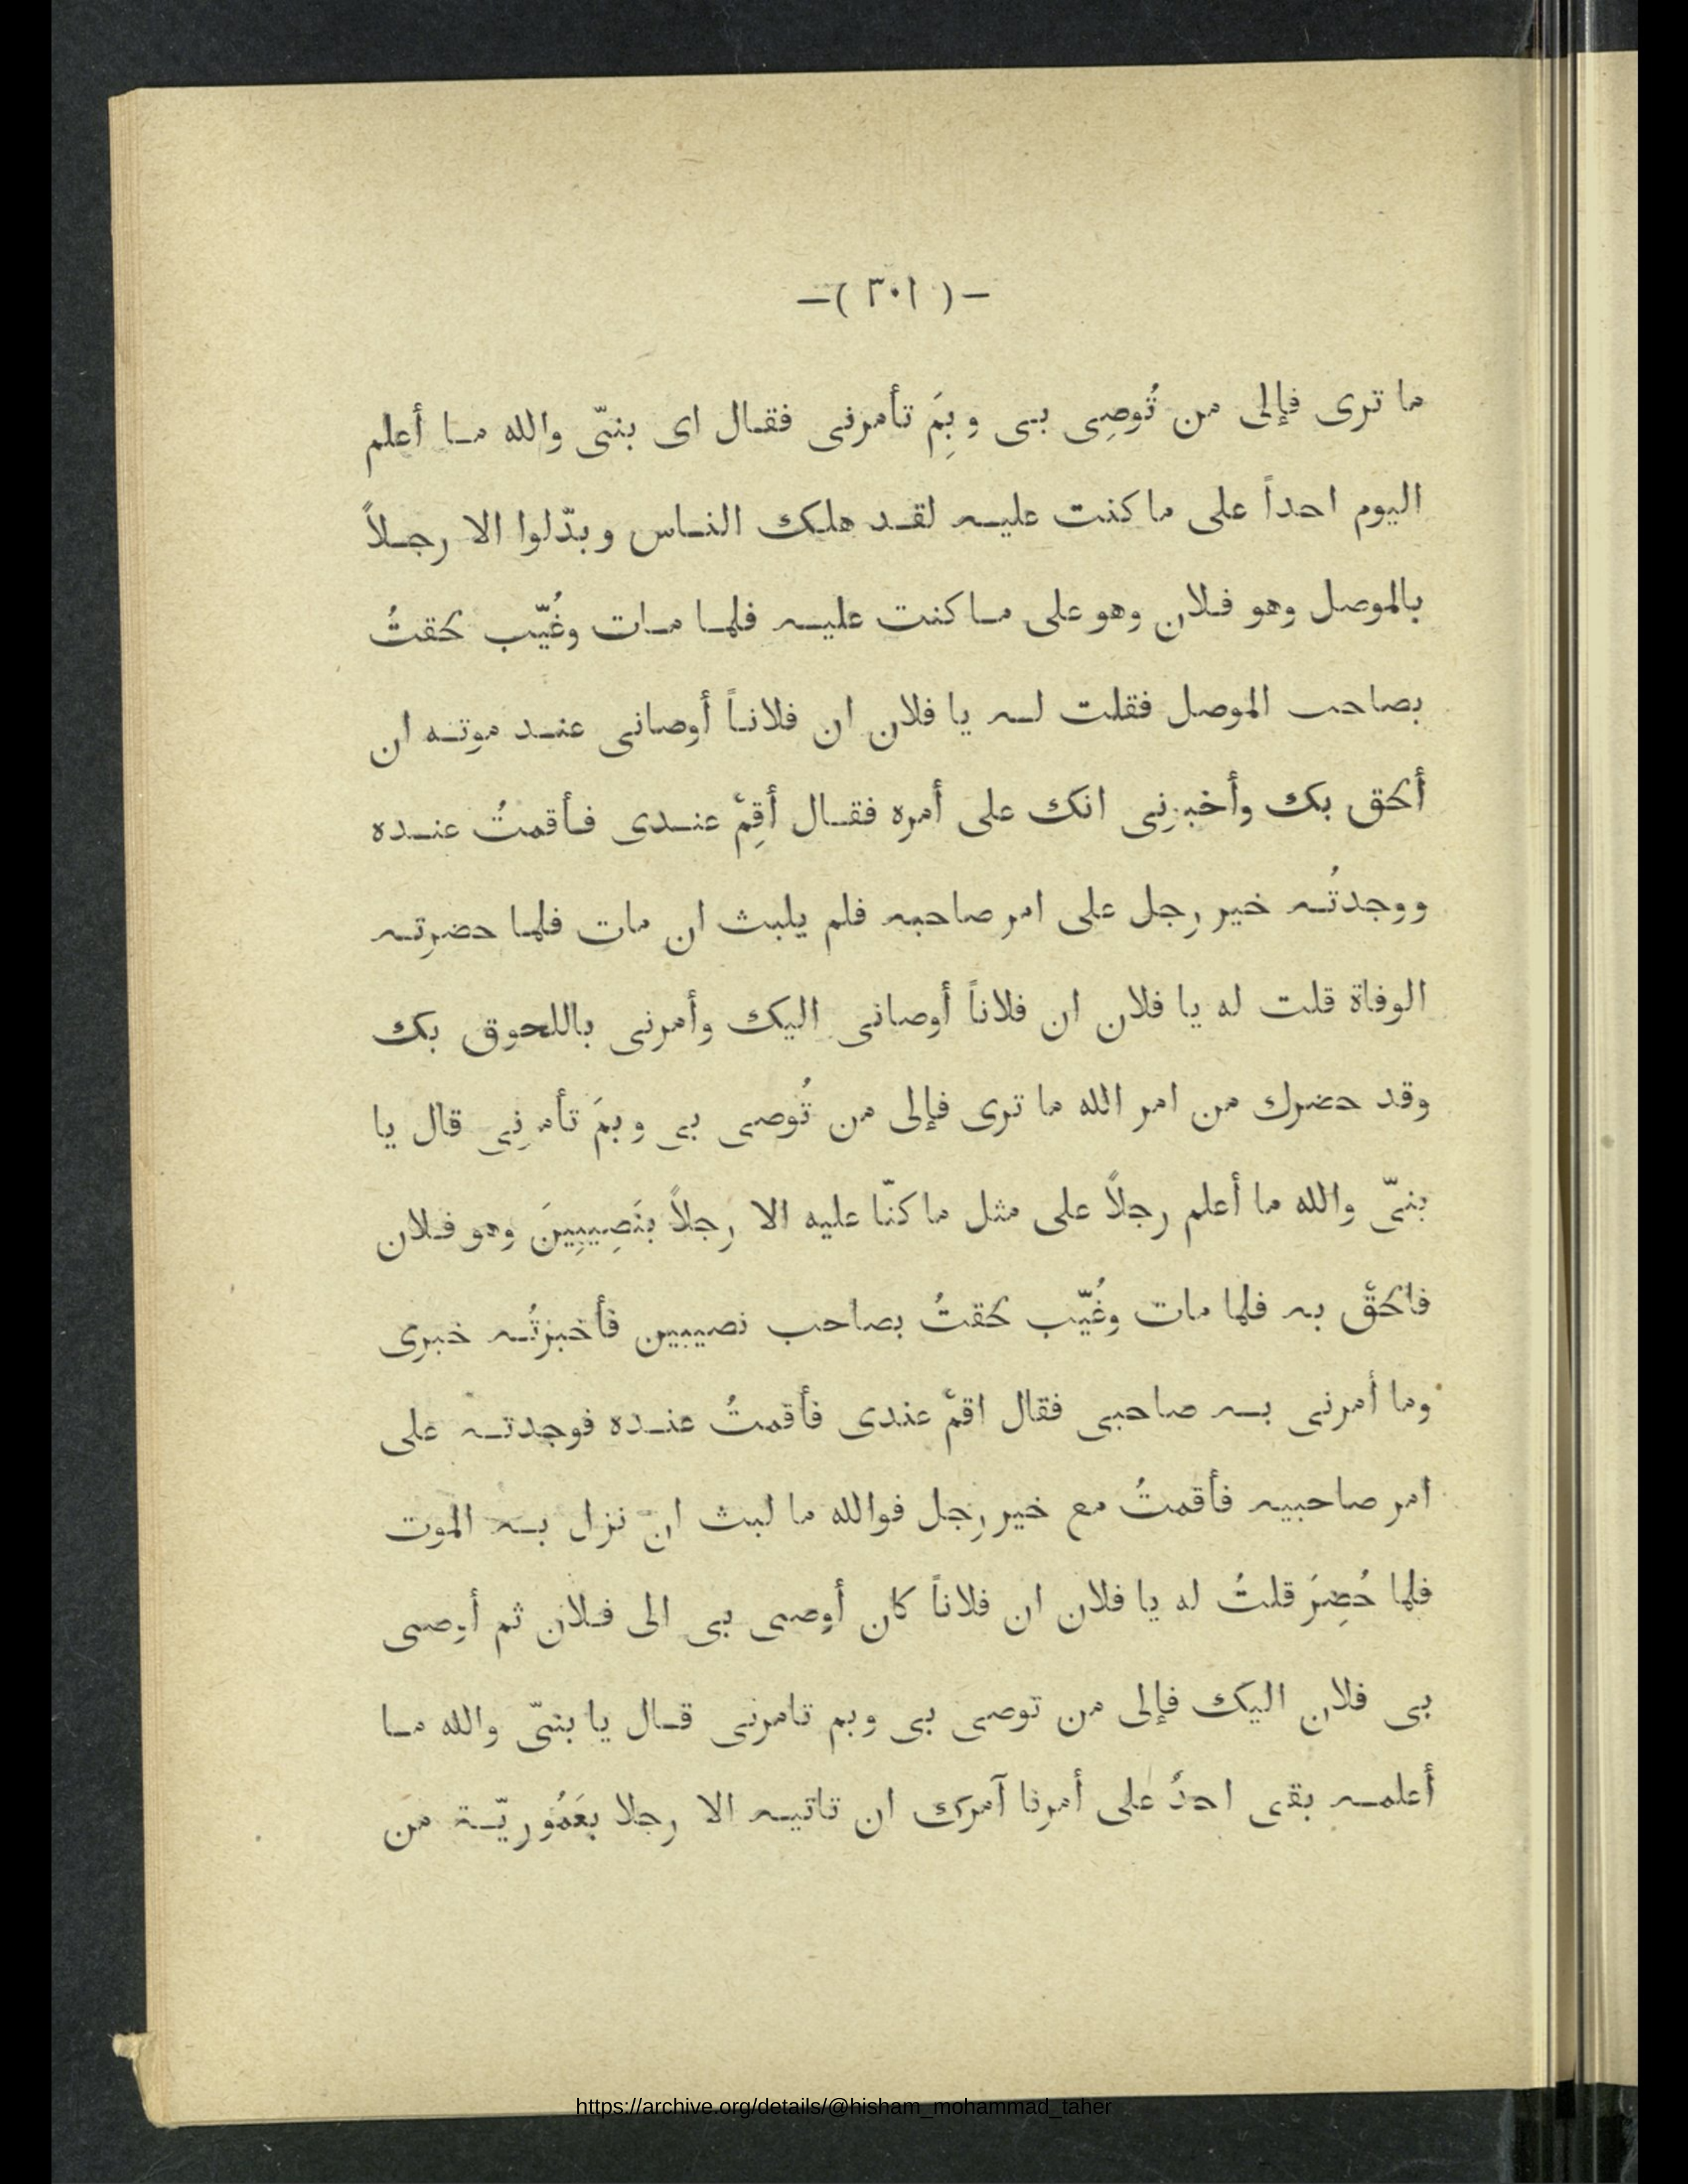 —( ٣٠١ )—
ما ترى فإلى من تُوصِى بى وبِمَ تأمرنى فقال اى بنىّ والله ما أعلم
اليوم احداً على ما كنت عليه لقد هلك الناس وبدّلوا الا رجلاً
بالموصل وهو فلان وهو على ما كنت عليه فلما مات وغُيّب لحقتُ
بصاحب الموصل فقلت له يا فلان ان فلاناً أوصانى عند موته ان
ألحق بك وأخبرنى انك على أمره فقال أقِمْ عندى فأقمتُ عنده
ووجدتُه خير رجل على امر صاحبه فلم يلبث ان مات فلما حضرته
الوفاة قلت له يا فلان ان فلاناً أوصانى اليك وأمرنى باللحوق بك
وقد حضرك من امر الله ما ترى فإلى من تُوصى بى وبمَ تأمرنى قال يا
بنىّ والله ما أعلم رجلاً على مثل ما كنّا عليه الا رجلاً بنَصِيبِينَ وهو فلان
فالحقْ به فلما مات وغُيّب لحقتُ بصاحب نصيبين فأخبرتُه خبرى
وما أمرنى به صاحبى فقال اقمْ عندى فأقمتُ عنده فوجدته على
امر صاحبيه فأقمتُ مع خير رجل فوالله ما لبث ان نزل به الموت
فلما حُضِرَ قلتُ له يا فلان ان فلاناً كان أوصى بى الى فلان ثم أوصى
بى فلان اليك فإلى من توصى بى وبم تامرنى قال يا بنىّ والله ما
أعلمه بقى احدٌ على أمرنا آمرك ان تاتيه الا رجلا بعَمُوريّة من
https://archive.org/details/@hisham_mohammad_taher